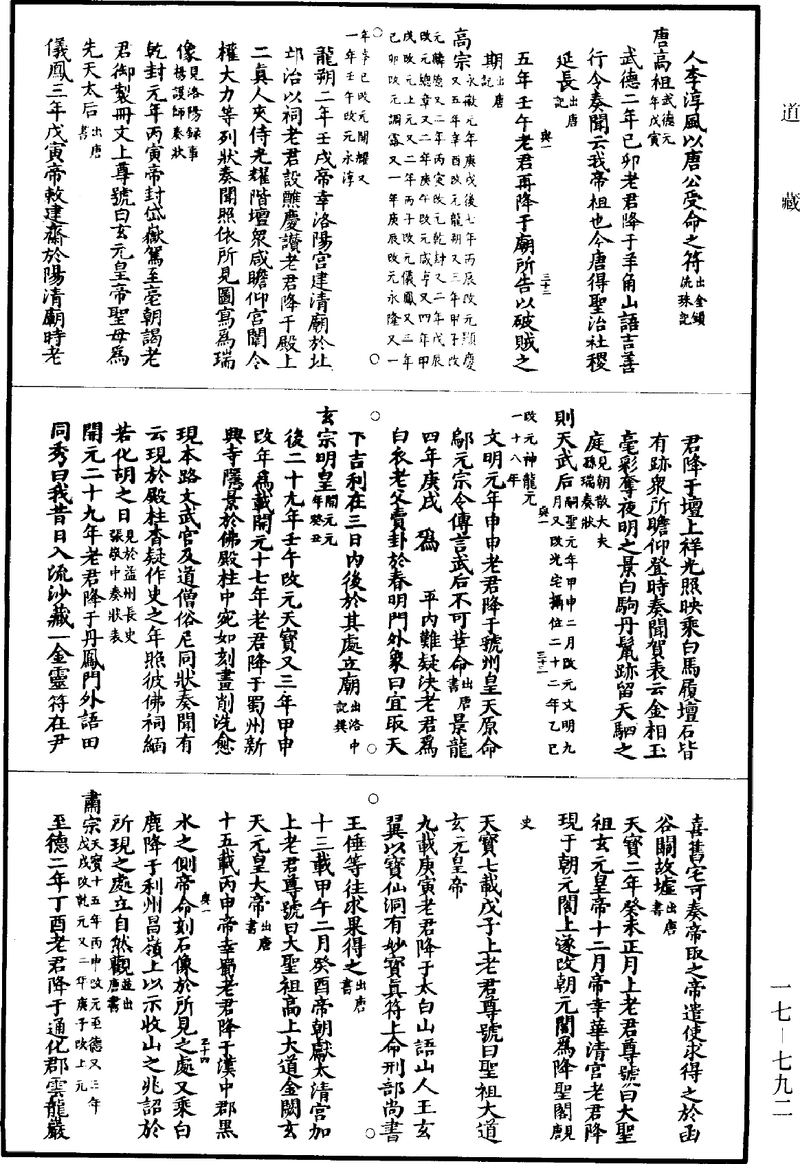 道藏
人李淳風以唐公受命之符出金鎖流珠記
唐高祖武德元年戊寅
武德二年己卯老君降于羊角山語吉善
行令奏聞云我帝祖也今唐得聖治社稷
延長出唐記
與一
三十二
五年壬午老君再降于廟所告以破賊之
期出唐記
高宗永徽元年庚戌後七年丙辰改元顯慶又五年辛酉改元龍朔又三年甲子改元麟德又二年丙寅改元乾封又二年戊辰改元總章又二年庚午改元咸亨又四年甲戌改元上元又二年丙子改元儀鳳又三年己卯改元調露又一年庚辰改元永隆又一年辛巳改元開耀又一年壬午改元永淳
龍朔二年壬戌帝幸洛陽宮建清廟於北
邙治以祠老君設醮慶讚老君降于殿上
二真人夾侍光耀階壇衆咸瞻仰宮闈令
權大力等列狀奏聞照依所見圖寫為瑞
像見洛陽録事楊護師奏狀
乾封元年丙寅帝封岱嶽駕至亳朝謁老
君御製冊文上尊號曰玄元皇帝聖母為
先天太后出唐書
儀鳳三年戊寅帝敕建齋於陽清廟時老
君降于壇上祥光照映乘白馬履壇石皆
有跡衆所瞻仰登時奏聞賀表云金相玉
毫彩奪夜明之景白駒丹鬣跡留天駟之
庭見朝散大夫孫瑞奏狀
與一
三十三
則天武后嗣聖元年甲申二月改元文明九月又改光宅攝位二十二年乙巳改元神龍元一十八年
文明元年甲申老君降于虢州皇天原命
鄔元宗令傳言武后不可革命出唐書景龍
四年庚戌為平内難疑決老君為
白衣老父賣卦於春明門外象曰宜取天
下吉利在三日内後於其處立廟出洛中記異
玄宗明皇開元元年癸丑
後二十九年壬午改元天寶又三年甲申
改年為載開元十七年老君降于蜀州新
興寺隱景於佛殿柱中宛如刻畫削洗愈
現本路文武官及道僧俗尼同狀奏聞有
云現於殿柱杳疑作史之年照彼佛祠緬
若化胡之日見於益州長史張敬中奏狀表
開元二十九年老君降于丹鳳門外語田
同秀曰我昔日入流沙藏一金靈符在尹
喜舊宅可奏帝取之帝遣使求得之於函
谷關故墟出唐書
天寶二年癸未正月上老君尊號曰大聖
祖玄元皇帝十二月帝幸華清宮老君降
現于朝元閣上遂改朝元閣為降聖閣
史
天寶七載戊子上老君尊號曰聖祖大道
玄元皇帝
九載庚寅老君降于太白山語山人王玄
翼以寶仙洞有妙寶真符上命刑部尚書
王倕等往求果得之出唐書
十三載甲午二月癸酉帝朝獻太清宮加
上老君尊號曰大聖祖高上大道金闕玄
天元皇大帝出唐書
十五載丙申帝幸蜀老君降于漢中郡黑
與一
三十四
水之側帝命刻石像於所見之處又乘白
鹿降于利州昌嶺上以示收山之兆詔於
所現之處立自然觀並出唐書
肅宗天寶十五年丙申改元至德又三年戊戌改乾元又二年庚子改上元
至德二年丁酉老君降于通化郡雲龍巖
一七—七九二